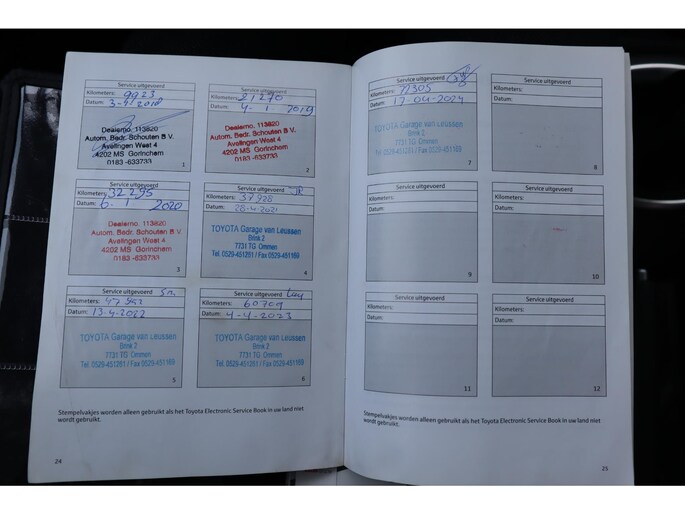 Service uitgevoerd
Kilometers: 9923
Datum: 3-4-2018
Dealerno. 113820
Autom. Bedr. Schouten B.V.
Avelingen West 4
4202 MS Gorinchem
0183-633733
1
Service uitgevoerd
Kilometers: 21270
Datum: 4-1-2019
Dealerno. 113820
Autom. Bedr. Schouten B.V.
Avelingen West 4
4202 MS Gorinchem
0183-633733
2
Service uitgevoerd
Kilometers: 32295
Datum: 6-1 2020
Dealerno. 113820
Autom. Bedr. Schouten B.V.
Avelingen West 4
4202 MS Gorinchem
0183-633733
3
Service uitgevoerd
Kilometers: 37928
Datum: 28-4-2021
TOYOTA Garage van Leussen
Brink 2
7731 TG Ommen
Tel. 0529-451261 / Fax 0529-451169
4
Service uitgevoerd
Kilometers:
Datum: 13-4-2022
TOYOTA Garage van Leussen
Brink 2
7731 TG Ommen
Tel. 0529-451261 / Fax 0529-451169
5
Service uitgevoerd
Kilometers: 60709
Datum: 4-4-2023
TOYOTA Garage van Leussen
Brink 2
7731 TG Ommen
Tel. 0529-451261 / Fax 0529-451169
6
Stempelvakjes worden alleen gebruikt als het Toyota Electronic Service Book in uw land niet
wordt gebruikt.
24
Service uitgevoerd
Kilometers: 77305
Datum: 17-04-2024
TOYOTA Garage van Leussen
Brink 2
7731 TG Ommen
Tel. 0529-451261 / Fax 0529-451169
7
Service uitgevoerd
Kilometers:
Datum:
8
Service uitgevoerd
Kilometers:
Datum:
9
Service uitgevoerd
Kilometers:
Datum:
10
Service uitgevoerd
Kilometers:
Datum:
11
Service uitgevoerd
Kilometers:
Datum:
12
Stempelvakjes worden alleen gebruikt als het Toyota Electronic Service Book in uw land niet
wordt gebruikt.
25